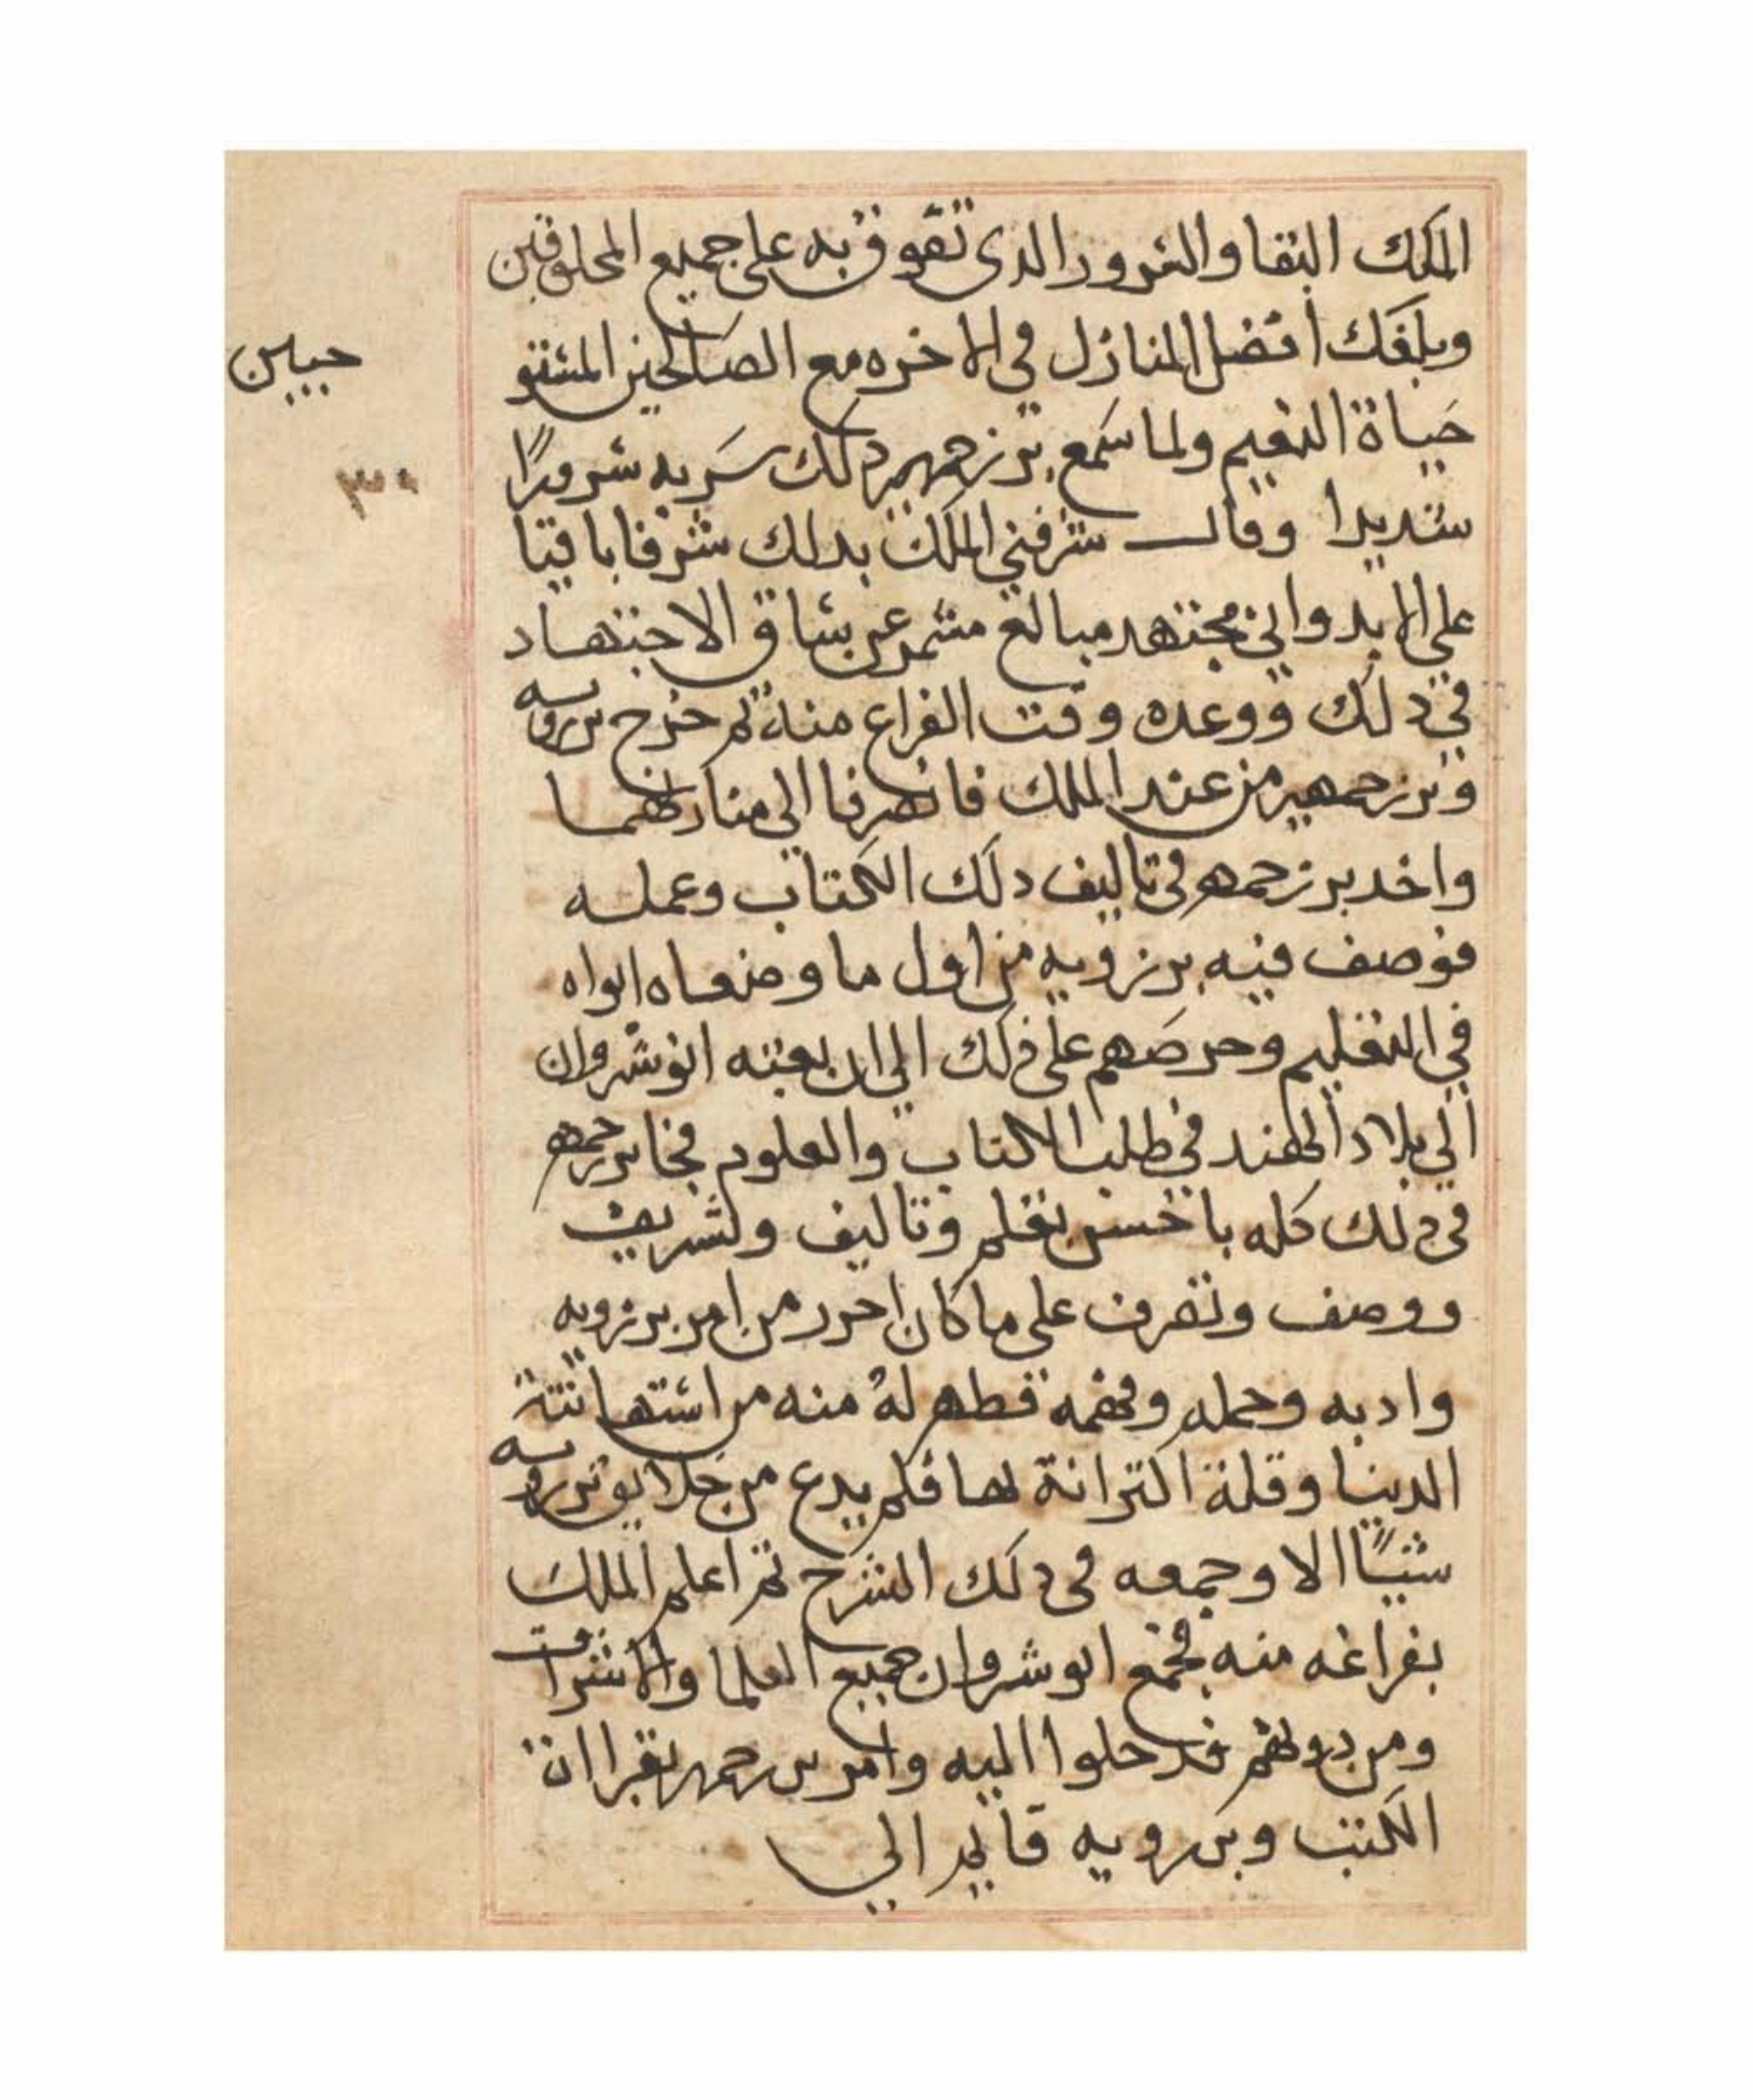 الملك البقا والسرور الدى تفوق به على جميع المخلوقين
ويلغك افضل المنازل في الاخره مع الصالحين المستو
جبين
حياة النعيم ولما سمع برزجمهير دلك سر به سرورًا
٣٠
شديدا وقال شرفني الملك بدلك شرفا باقيا
علي الابد واني مجتهد مبالغ مشمر عن ساق الاجتهاد
في دلك ووعده وقت الفراغ منه ثم خرج برزويه
وبرزجمهير من عند الملك فانصرفا الي منازلهما
واخد برزجمهر في تاليف دلك الكتاب وعمله
فوصف فيه برزويه من اول ما وضعاه ابواه
في التعليم وحرصهم على دلك الي ان بعته انوشروان
الي بلاد الهند في طلب الكتاب والعلوم فجا برزجمهر
في ذلك كله باحسن نظم وتاليف وتشريف
ووصف وتصرف على ما كان احرر من امر برزويه
وادبه وحمله وفهمه فظهر له منه من استهانته
الدينا وقلة اكترانة لها فلم يدع من خلايق برزويه
شيًا الا وجمعه في دلك الشرح ثم اعلم الملك
بفراغه منه فجمع انوشروان جميع العلما والاشراف
ومن دونهم فدخلوا اليه وامر برزجمهر بقراات
الكتب وبرزويه قايم الي